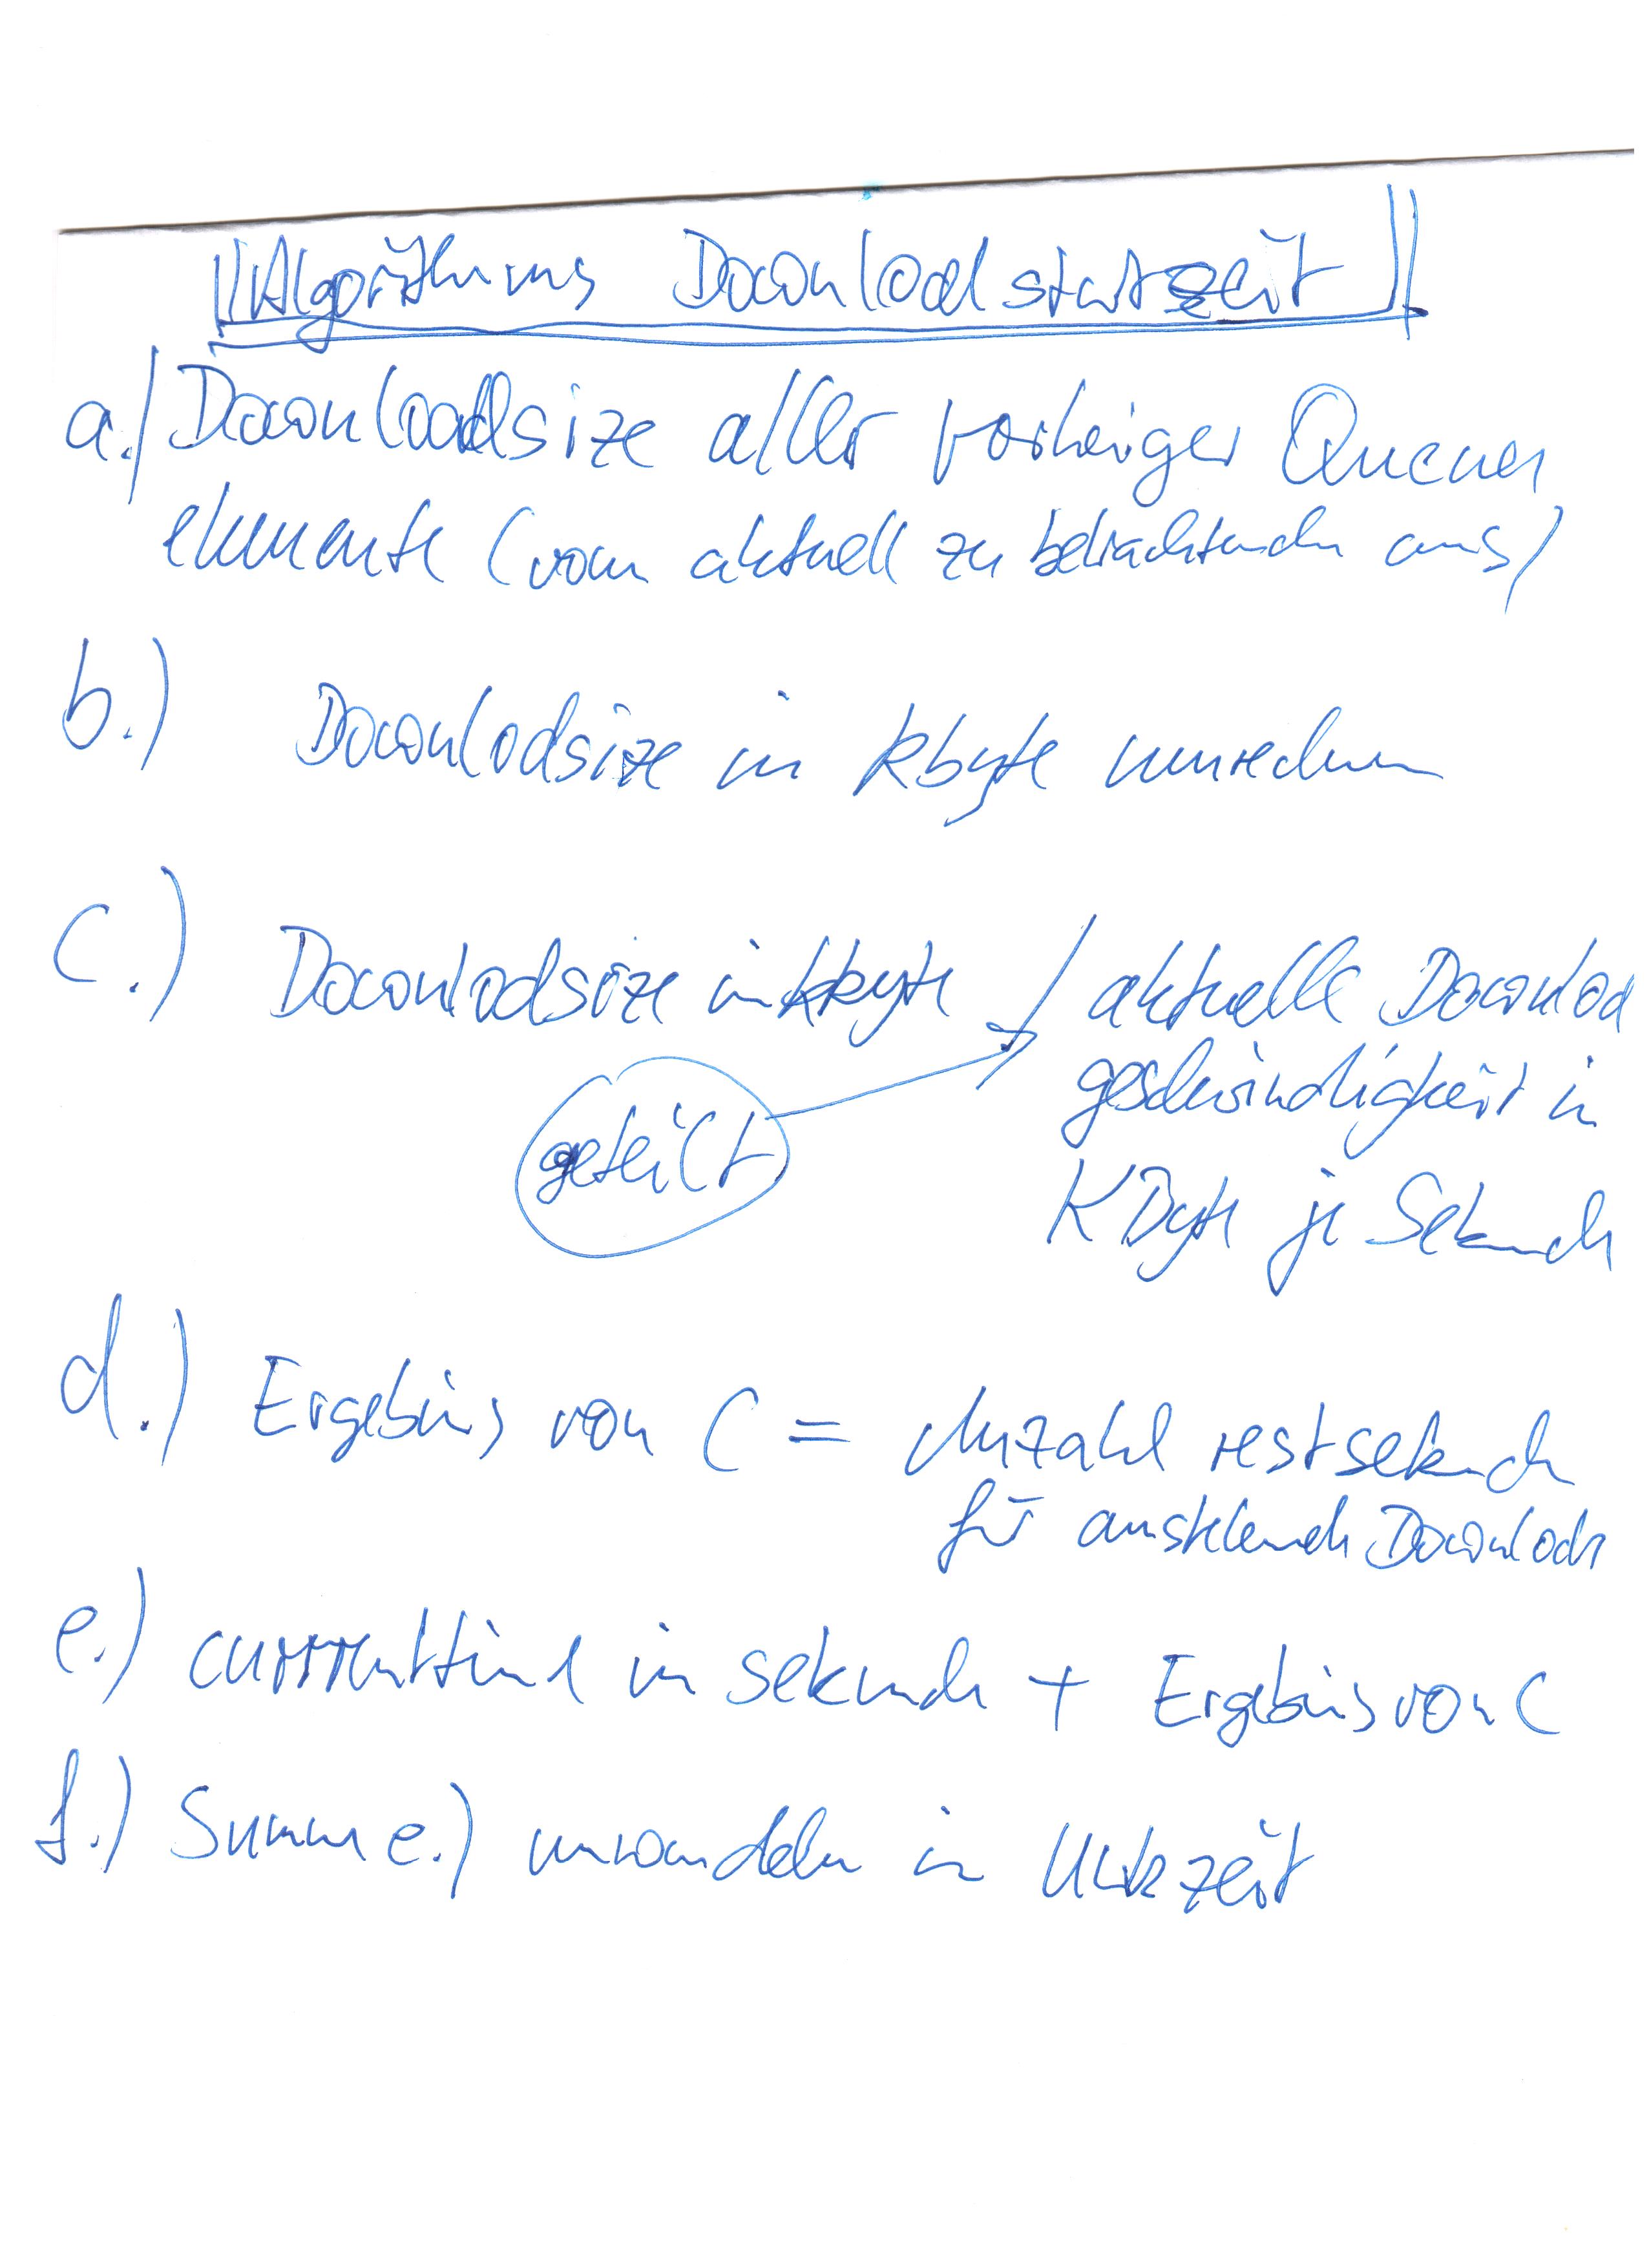 Algorithmus Downloadstartzeit
a.) Downloadsize aller vorheriger Queuen
elemente (vom aktuell zu betrachtenden aus)
b.) Downlodsize in kbyte umrechnen
c.) Downlodsize in kbyte / aktuelle Downlod
geschwindigkeit in
geteilt
KByte je Sekunde
d.) Ergebnis von C = Anzahl restsekunden
für anstehende Downlods
e.) currenttime in sekunden + Ergebnis von C
f.) Summe e.) umwandeln in Uhrzeit